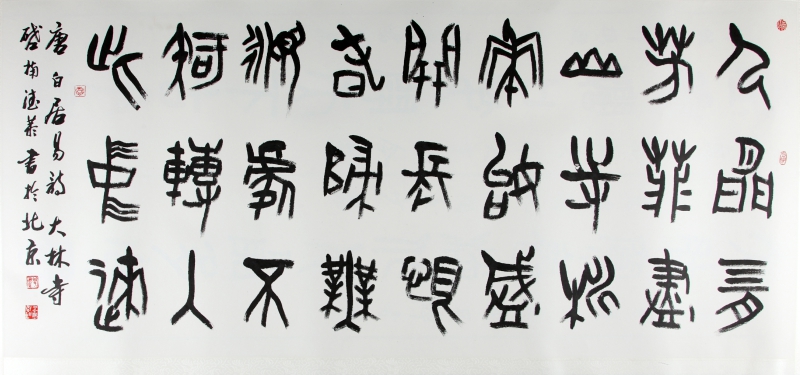 人間四月
芳菲盡
山寺桃
華始盛
開長恨
春歸無
覓處不
知轉入
此中來
唐白居易詩大林寺
書於北京